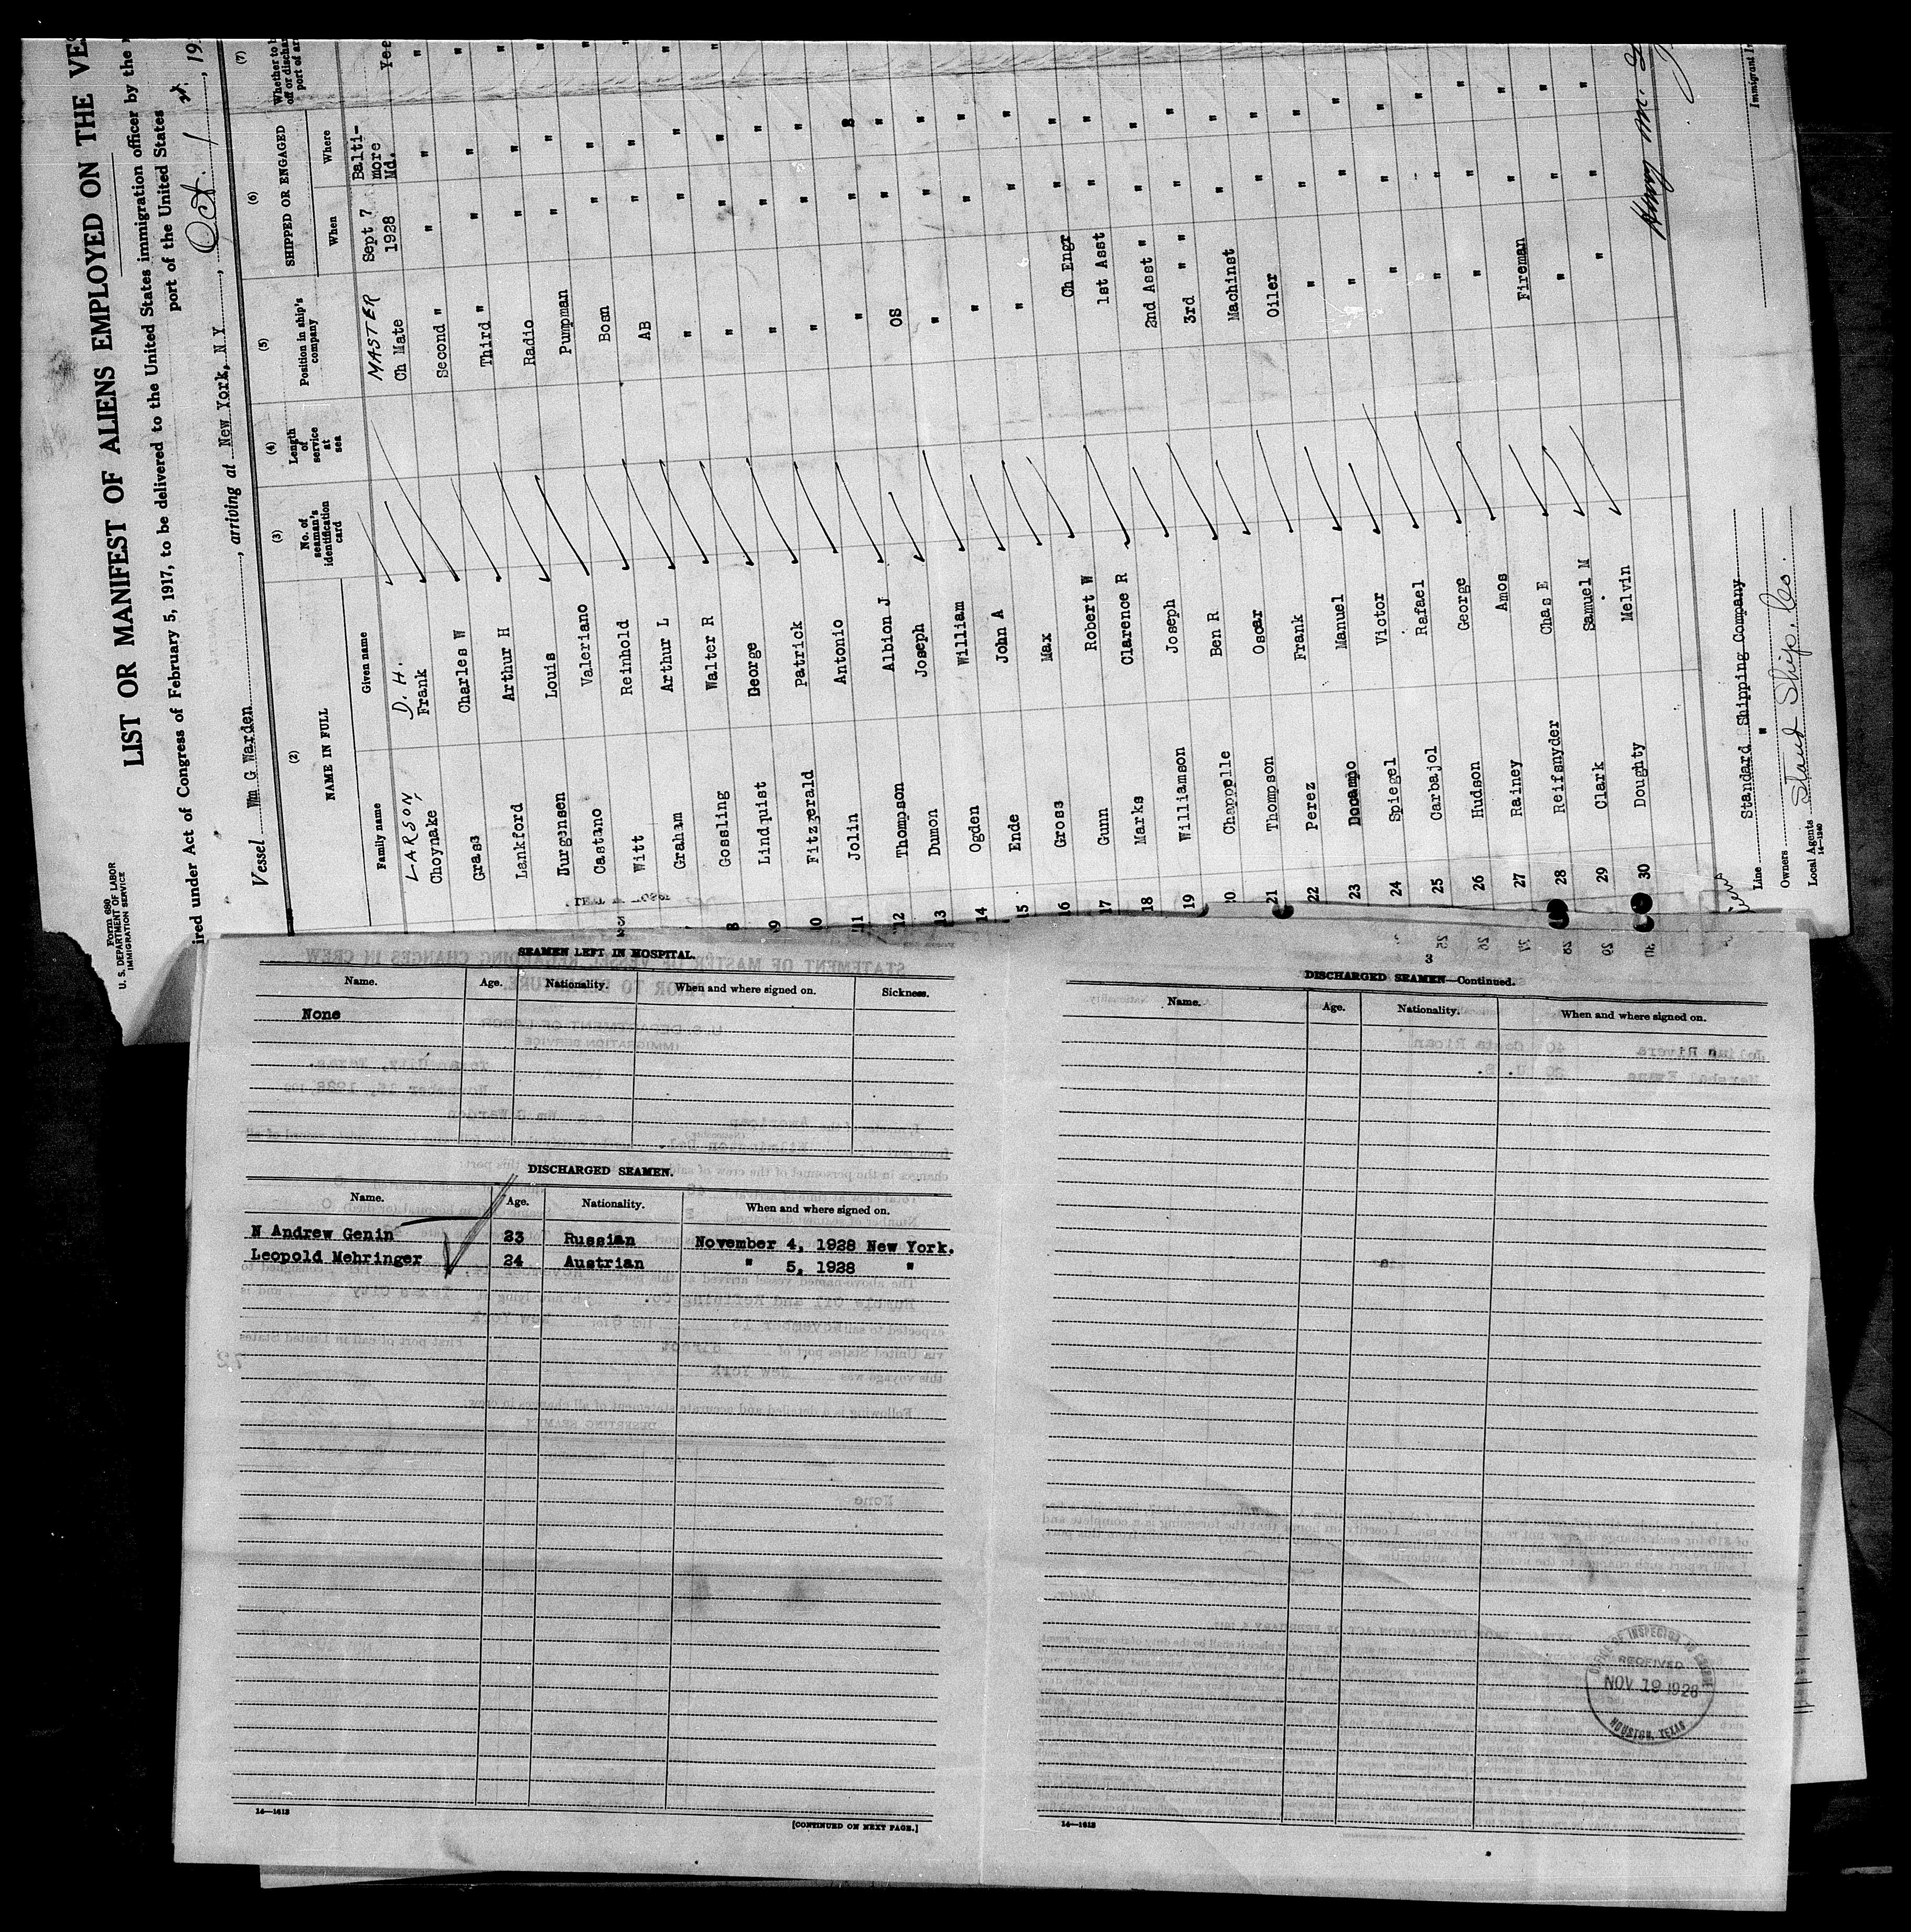 Form 680
U. S. DEPARTMENT OF LABOR
IMMIGRATION SERVICE
LIST OR MANIFEST OF ALIENS EMPLOYED ON THE VES
ired under Act of Congress of February 5, 1917, to be delivered to the United States immigration officer by the
port of the United States
Vessel Wm G Warden, arriving at New York, N Y, Oct. 1 st, 19
(2) (3) (4) (5) (6) (7)
NAME IN FULL No. of seaman's identification card Length of service at sea Position in ship's company SHIPPED OR ENGAGED Whether to b off or dischar port of ar
Family name Given name When Where
LARSON, D. H. MASTER Sept 7 1928 Balti-more Md. Yes
Choynake Frank Ch Mate
Grass Charles W Second " " " "
Lankford Arthur H Third " " " "
Durgensen Louis Radio " " "
Castano Valeriano Pumpman " " "
Witt Reinhold Bosn " " "
Graham Arthur L AB " " "
8 Gossling Walter R " " " "
9 Lindquist George " " " "
10 Fitzgerald Patrick " " "
11 Jolin Antonio " " "
12 Thompson Albion J OS " "
13 Dumon Joseph " " "
14 Ogden William " " "
15 Ende John A " " "
16 Gross Max Ch Engr " "
17 Gunn Robert W 1st Asst " "
18 Marks Clarence R 2nd Asst " " "
19 Williamson Joseph 3rd " " " "
20 Chappelle Ben R Machinst " "
21 Thompson Oscar Oiler " "
22 Perez Frank " " "
23 Docampo Manuel " " "
24 Spiegel Victor " " "
25 Carbajol Rafael " " "
26 Hudson George " " "
27 Rainey Amos Fireman " "
28 Reifsnyder Chas E " " "
29 Clark Samuel M " " "
30 Doughty Melvin
Line Standard Shipping Company
Owners "
Local Agents Stand Ship. Co.
14—1240
Immigrant In
SEAMEN LEFT IN HOSPITAL.
Name. Age. Nationality. When and where signed on. Sickness.
None
DISCHARGED SEAMEN.
Name. Age. Nationality. When and where signed on.
N Andrew Genin 23 Russian November 4, 1928 New York.
Leopold Mehringer 24 Austrian " 5, 1928 "
14—1613
[CONTINUED ON NEXT PAGE.]
3
DISCHARGED SEAMEN—Continued.
Name. Age. Nationality. When and where signed on.
RECEIVED
NOV 19 1928
HOUSTON, TEXAS
14—1613